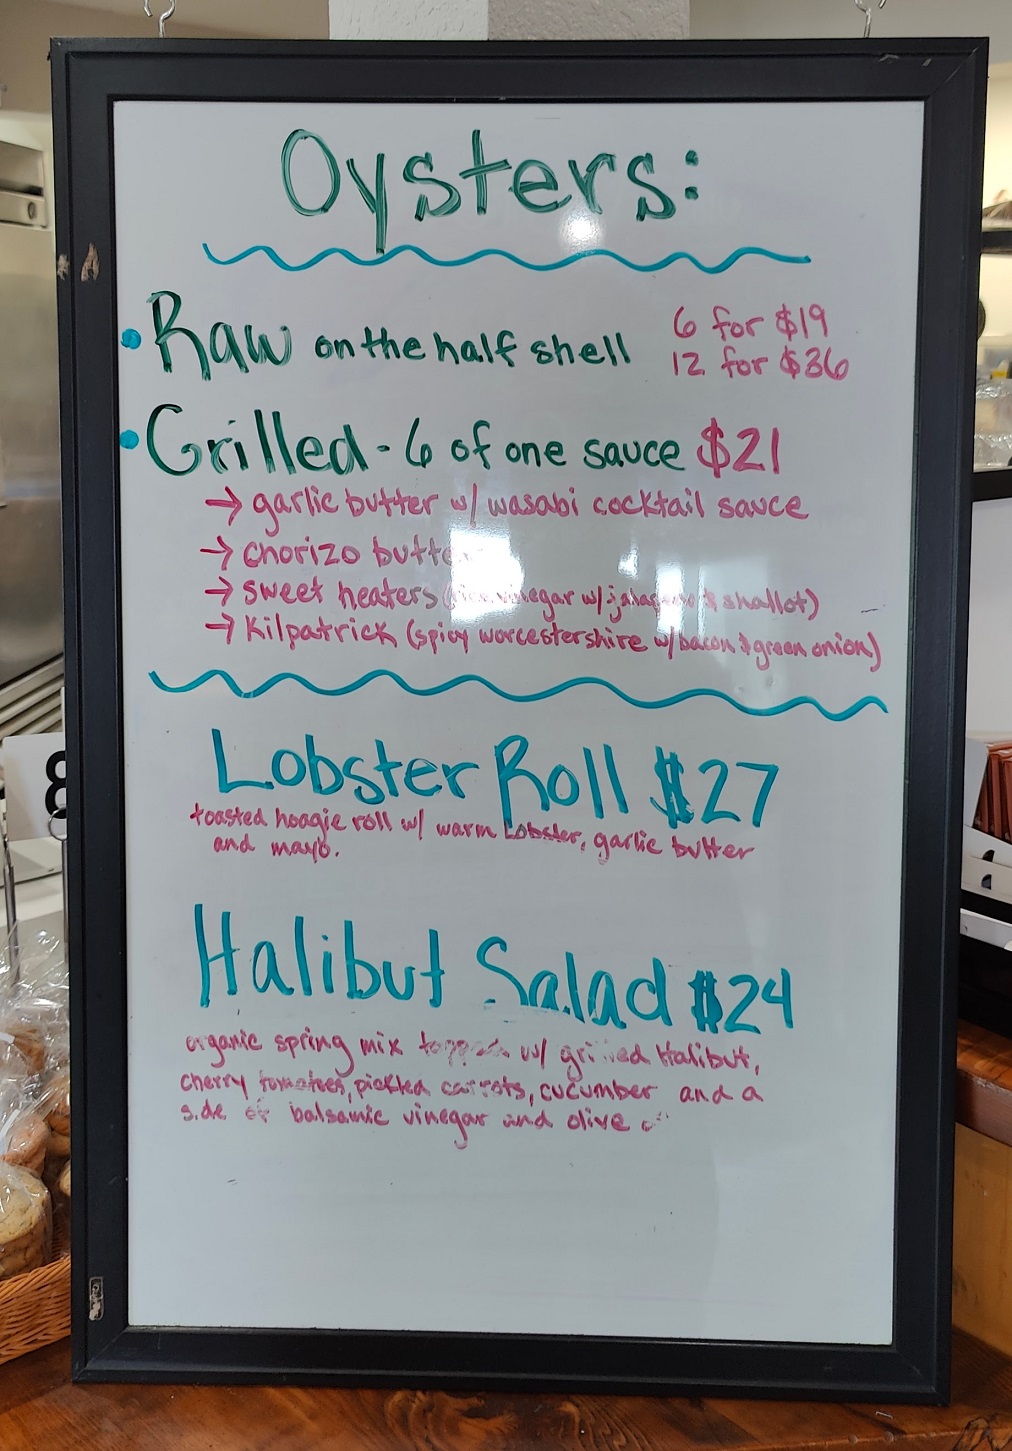 Oysters:
Raw on the half shell 6 for $19
12 for $36
Grilled - 6 of one sauce $21
→ garlic butter w/ wasabi cocktail sauce
→ chorizo butter
→ sweet heaters (rice vinegar w/ jalapeno & shallot)
→ Kilpatrick (spicy worcestershire w/ bacon & green onion)
Lobster Roll $27
toasted hoagie roll w/ warm Lobster, garlic butter
and mayo.
Halibut Salad $24
organic spring mix topped w/ grilled Halibut,
cherry tomatoes, pickled carrots, cucumber and a
side of balsamic vinegar and olive
8